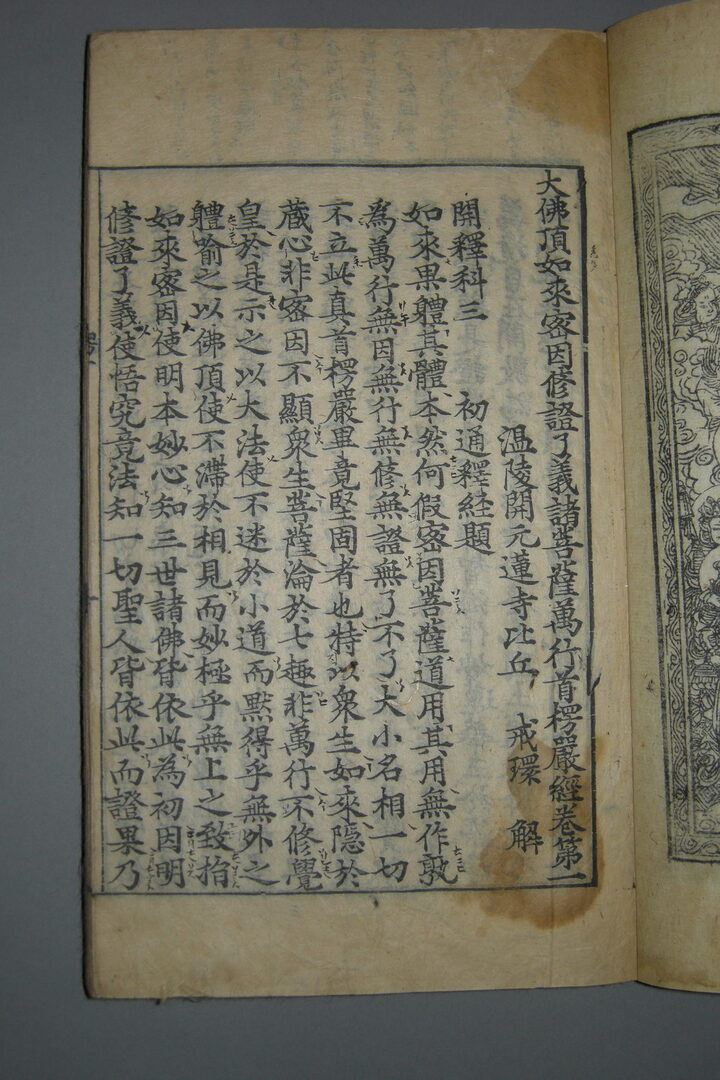 大佛頂如來密因修證了義諸菩薩萬行首楞嚴經卷第一
温陵開元蓮寺比丘 戒環 解
開釋科三 初通釋経題
如來果體其體本然何假密因菩薩道用其用無作孰
為萬行無因無行無修無證無了不了大小名相一切
不立此真首楞嚴畢竟堅固者也特以衆生如來隱於
蔵心非密因不顯衆生菩薩淪於七趣非萬行不修覺
皇於是示之以大法使不迷於小道而黙得乎無外之
軆喻之以佛頂使不滯於相見而妙極乎無上之致指
如來密因使明本妙心知三世諸佛皆依此為初因明
修證了義使悟究竟法知一切聖人皆依此而證果乃